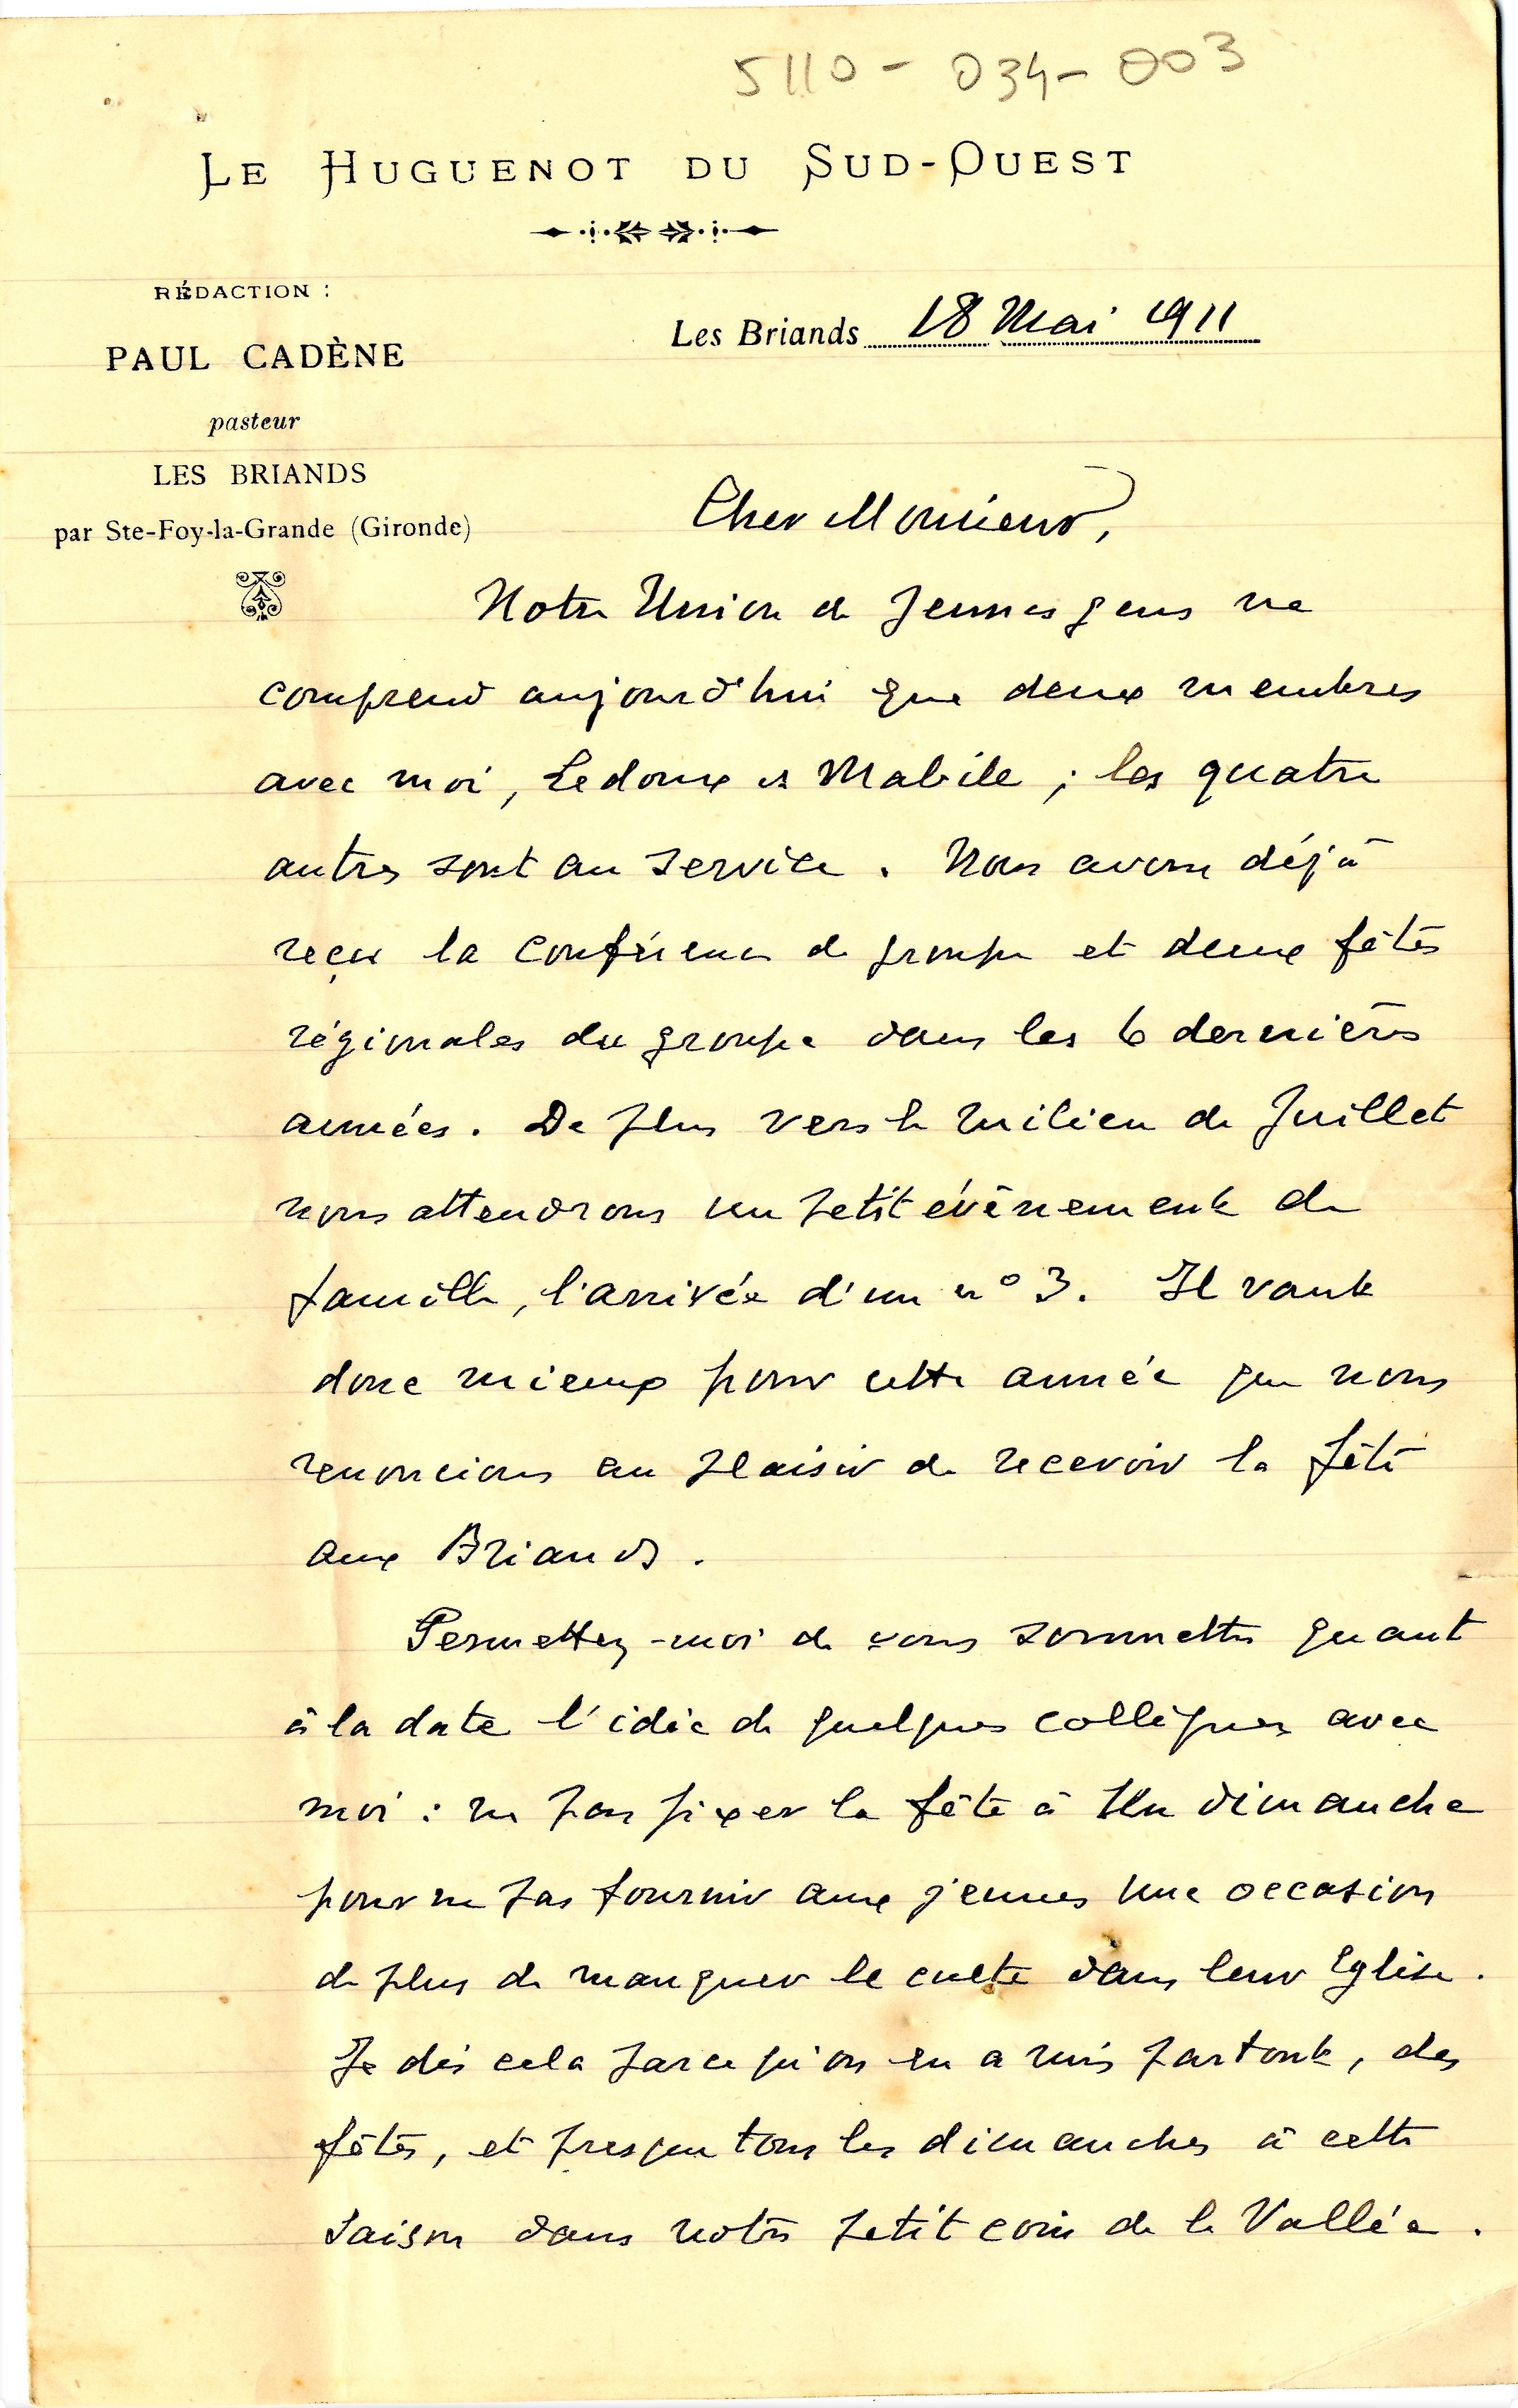 5110-034-003
LE HUGUENOT DU SUD-OUEST
RÉDACTION :
PAUL CADÈNE
pasteur
LES BRIANDS
par Ste-Foy-la-Grande (Gironde)
Les Briands 18 Mai 1911
Cher Monsieur,
Notre Union de Jeunes gens ne
comprend aujourd'hui que deux membres
avec moi, Ledoux et Mabile ; les quatre
autres sont au service. Nous avons déjà
reçu la conférence de groupe et deux fêtes
régionales du groupe dans les 6 dernières
années. De plus vers le milieu de Juillet
nous attendrons un petit évènement de
famille, l'arrivée d'un n° 3. Il vaut
donc mieux pour cette année que nous
renoncions au plaisir de recevoir la fête
aux Briands.
Permettez-moi de vous soumettre quant
à la date l'idée de quelques collègues avec
moi : ne pas fixer la fête à un dimanche
pour ne pas fournir aux jeunes une occasion
de plus de manquer le culte dans leur Eglise.
Je dis cela parce qu'on en a mis partout, des
fêtes, et presque tous les dimanches à cette
saison dans notre petit coin de la Vallée.